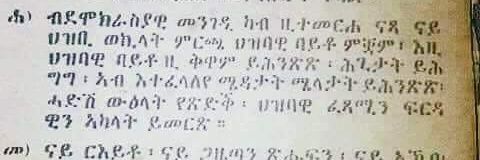 ሐ) ብደሞክራስያዊ መንገዲ ካብ ዚተመርሐ ናጻ ናይ
ህዝቢ ወኪላት ምርጫ ህዝባዊ ባይቶ ምቛም፡ እዚ
ህዝባዊ ባይቶ ዚ ቅዋም ይሕንጽጽ ፡ ሕጊታት ይሕ
ግግ ፡ ኣብ እተፈላለየ ሜዳታት ሜላታት ይሕንጽጽ፡
ሓድሽ ውዕላት የጽድቅ ፡ ህዝባዊ ፈጻሚን ፍርዳ
ዊን ኣካላት ይመርጽ ።
መ) ናይ ርእይቶ ፡ ናይ ጋዜጣን ጽሑፍን ፡ ናይ